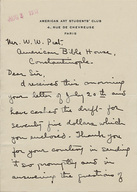 AMERICAN ART STUDENTS' CLUB
4, RUE DE CHEVREUSE
PARIS
Mr. W. W. Peet,
American Bible House,
Constantinople.
Dear Sir,
I received this morning
your letter of July 20th and
have cashed the draft for
seventy five dollars which
you enclosed. Thank you
for your courtesy in sending
it so promptly and in
answering the questions of